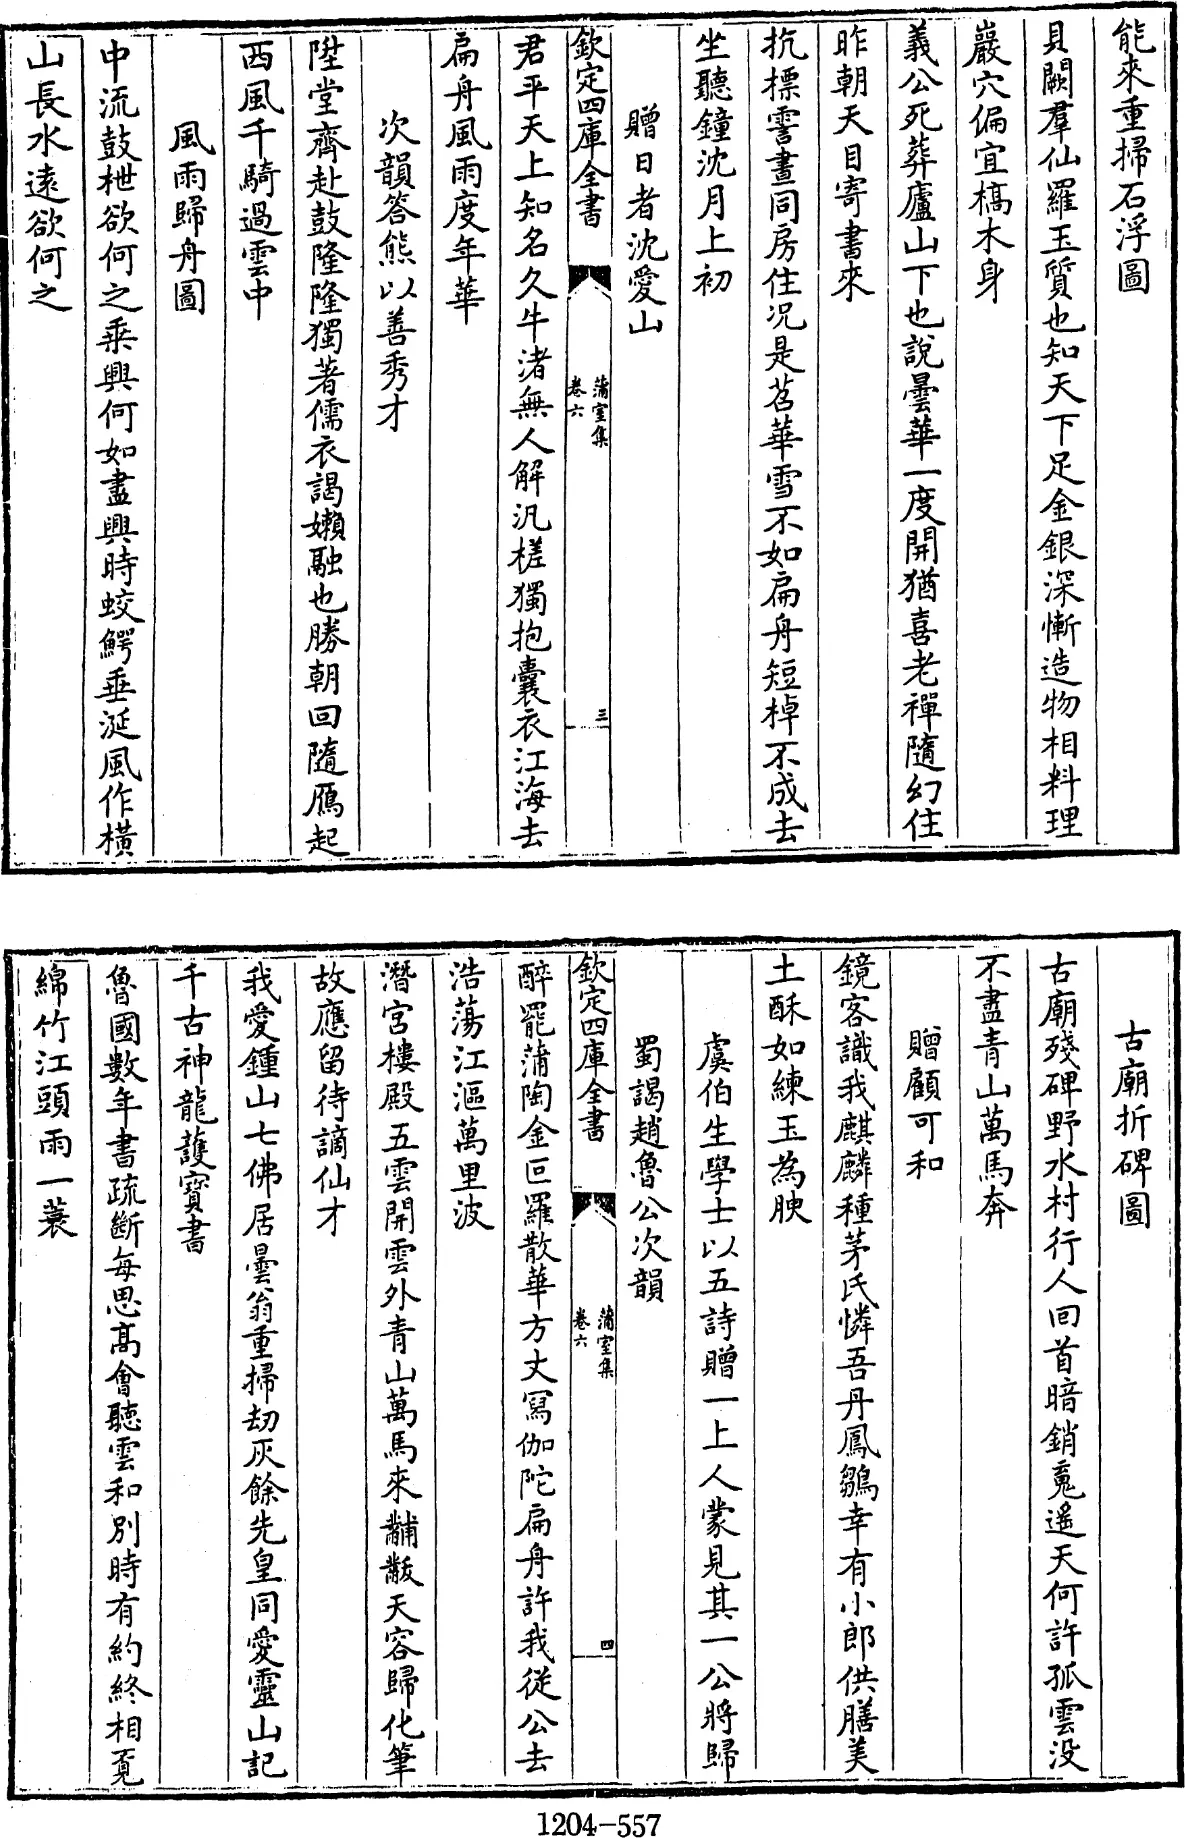 能來重掃石浮圖
貝闕羣仙羅玉質也知天下足金銀深慚造物相料理
巖穴偏宜槁木身
義公死葬廬山下也說曇華一度開猶喜老禪隨幻住
昨朝天目寄書來
抗標雲晝同房住况是苕華雪不如扁舟短棹不成去
坐聽鐘沈月上初
贈日者沈愛山
欽定四庫全書
蒲室集
卷六
三
君平天上知名久牛渚無人解汎槎獨抱囊衣江海去
扁舟風雨度年華
次韻答熊以善秀才
陞堂齊赴鼓隆隆獨著儒衣謁嬾融也勝朝回隨鴈起
西風千騎過雲中
風雨歸舟圖
中流鼓枻欲何之乘興何如盡興時蛟鰐垂涎風作橫
山長水遠欲何之
古廟折碑圖
古廟殘碑野水村行人回首暗銷䰟遙天何許孤雲没
不盡青山萬馬奔
贈顧可和
鏡客識我麒麟種茅氏憐吾丹鳳鶵幸有小郎供膳美
土酥如練玉為腴
虞伯生學士以五詩贈一上人蒙見其一公將歸
蜀謁趙魯公次韻
欽定四庫全書
蒲室集
卷六
四
醉罷蒲陶金叵羅散華方丈寫伽陀扁舟許我從公去
浩蕩江漚萬里波
潛宮樓殿五雲開雲外青山萬馬來黼黻天容歸化筆
故應留待謫仙才
我愛鍾山七佛居曇翁重掃劫灰餘先皇同愛靈山記
千古神龍護寶書
魯國數年書疏斷每思髙會聽雲和別時有約終相覔
綿竹江頭雨一蓑
1204-557